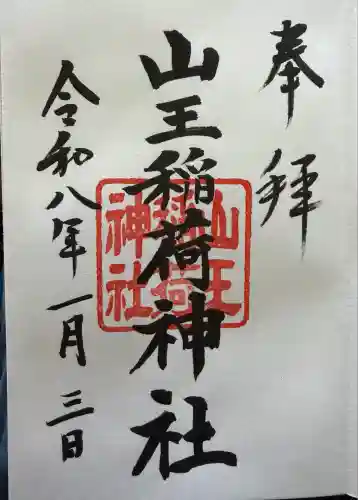 奉拝
山王稲荷神社
山王稲荷神社
令和八年一月三日